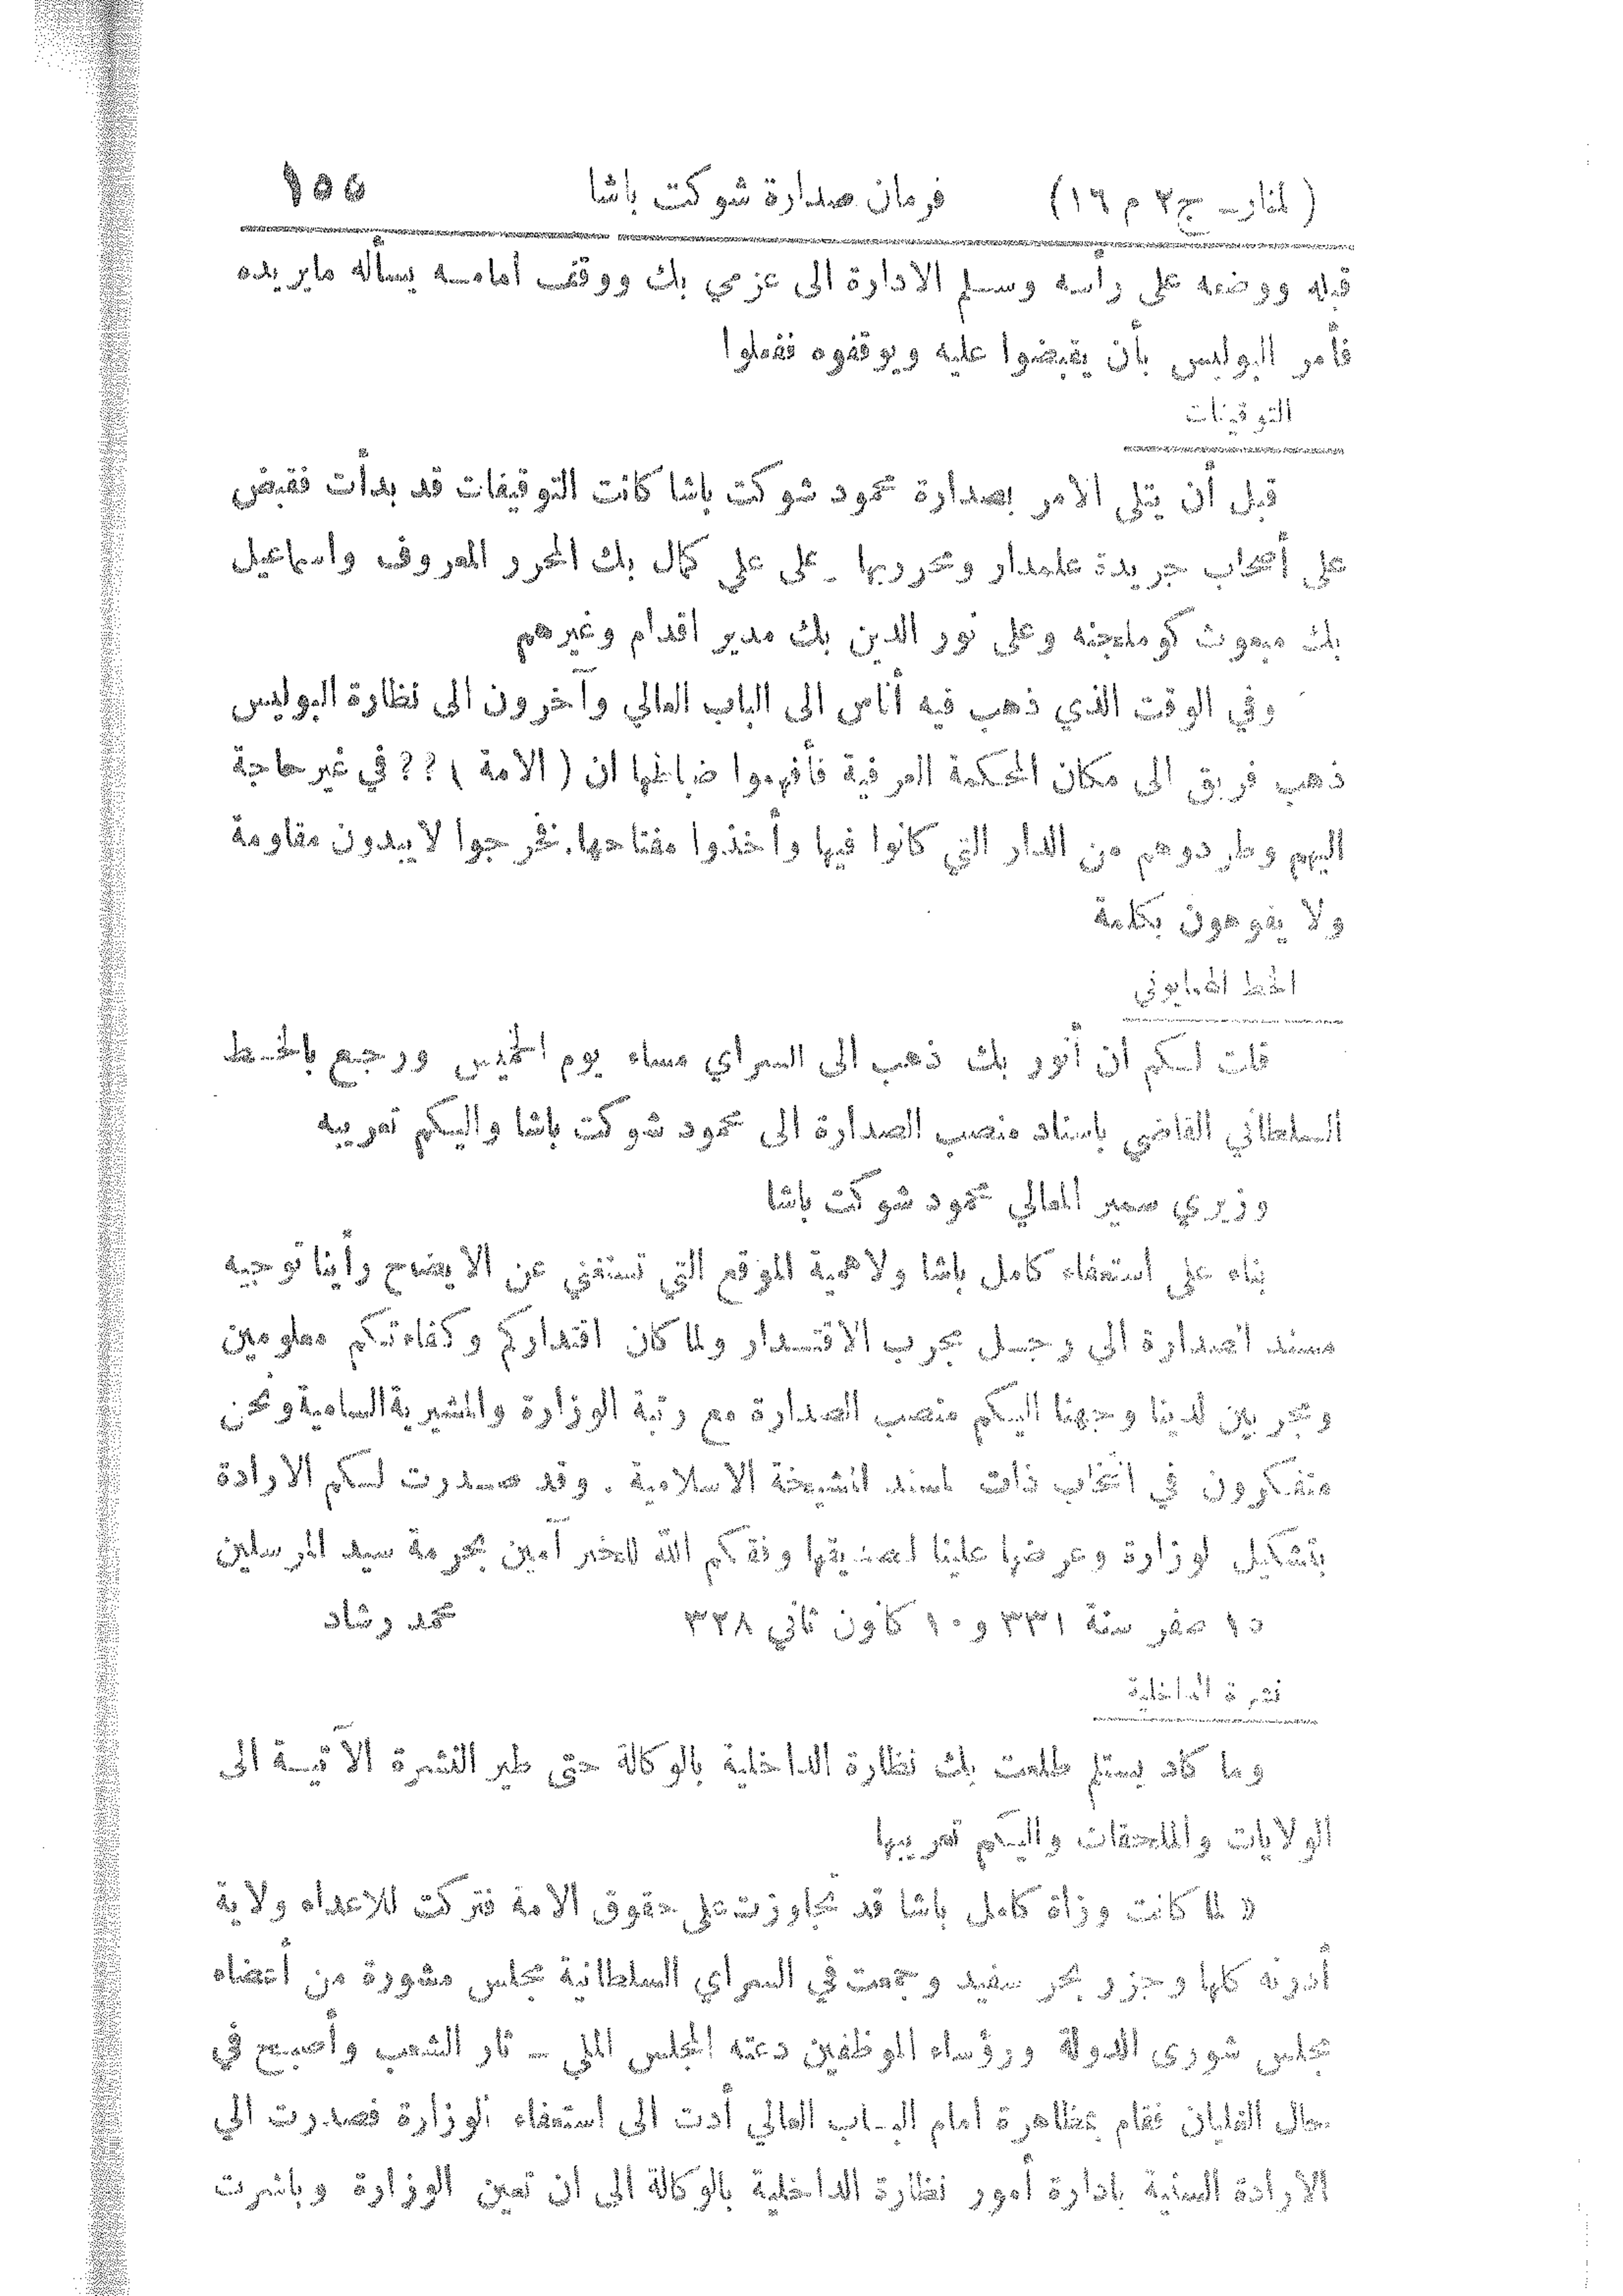 (المنار ـ ج ٢ م ١٦) فرمان صدارة شوكت باشا ١٥٥
قبله ووضعه على رأسه وسلم الادارة الى عزمي بك ووقف أمامه يسأله مايريده
فأمر البوليس بأن يقبضوا عليه ويوقفوه ففعلوا
التوقيفات
قبل أن يتلى الامر بصدارة محمود شوكت باشا كانت التوقيفات قد بدأت فقبض
على أصحاب جريدة علمدار ومحرريها ـ على علي كمال بك المحرر المعروف واسماعيل
بك مبعوث كوملجنه وعلى نور الدين بك مدير اقدام وغيرهم
وفي الوقت الذي ذهب فيه أناس الى الباب العالي وآخرون الى نظارة البوليس
ذهب فريق الى مكان المحكمة العرفية فأفهموا ضباطها ان (الامة) ؟؟ في غير حاجة
اليهم وطردوهم من الدار التي كانوا فيها وأخذوا مفتاحها. فخرجوا لا يبدون مقاومة
ولا يفوهون بكلمة
الخط الهمايوني
قلت لكم ان أنور بك ذهب الى السراي مساء يوم الخميس ورجع بالخط
السلطاني القاضي باسناد منصب الصدارة الى محمود شوكت باشا واليكم تعريبه
وزيري سمير المعالي محمود شوكت باشا
بناء على استعفاء كامل باشا ولاهمية الموقع التي تستغني عن الايضاح رأينا توجيه
مسند الصدارة الى رجل مجرب الاقتدار ولما كان اقتداركم وكفاءتكم معلومين
ومجربين لدينا وجهنا اليكم منصب الصدارة مع رتبة الوزارة والمشيرية السامية ونحن
متفكرون في انتخاب ذات لمسند المشيخة الاسلامية . وقد صدرت لكم الارادة
بتشكيل لوزارة وعرضها علينا لتصديقها وفقكم الله للخير آمين بحرمة سيد المرسلين
١٥ صفر سنة ٣٣١ و١٠ كانون ثاني ٣٢٨ محمد رشاد
نشرة الداخلية
وما كاد يستلم طلعت بك نظارة الداخلية بالوكالة حتى طير النشرة الآتية الى
الولايات والملحقات واليكم تعريبها
« لما كانت وزاة كامل باشا قد تجاوزت على حقوق الامة فتركت للاعداء ولاية
أدرنه كلها وجزر بحر سفيد وجمعت في السراي السلطانية مجلس مشورة من أعضاء
مجلس شورى الدولة ورؤساء الموظفين دعته المجلس الملي ـ ثار الشعب وأصبح في
حال الغليان فقام بمظاهرة امام الباب العالي أدت الى استعفاء الوزارة فصدرت الي
الارادة السنية بادارة أمور نظارة الداخلية بالوكالة الى ان تعين الوزارة وباشرت